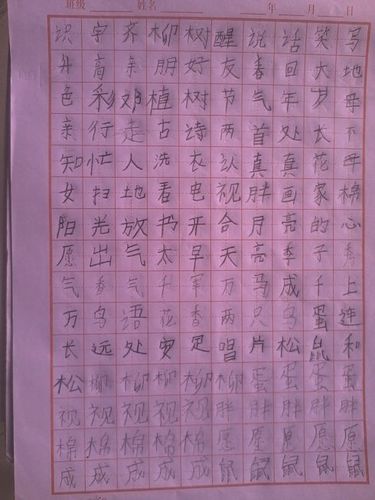 班级 姓名 年 月 日
识字芥柳树醒说话笑写
升高亲朋好友春回大地
色彩邓植树节气年岁母
亲行走古诗两首处长不
知忙人洗衣认真真花母
女扫地看电视胖画家棉
阳光放书开合月亮的心
愿出气太早天亮季子秀
气香气千军万马成千上
万鸟语花香两只鸟蛋连
长远处安定唱片松鼠和
松柳柳柳柳柳蛋蛋蛋蛋
视视视视视胖胖胖胖胖
棉棉棉棉棉愿愿愿愿愿
成成成成成鼠鼠鼠鼠鼠